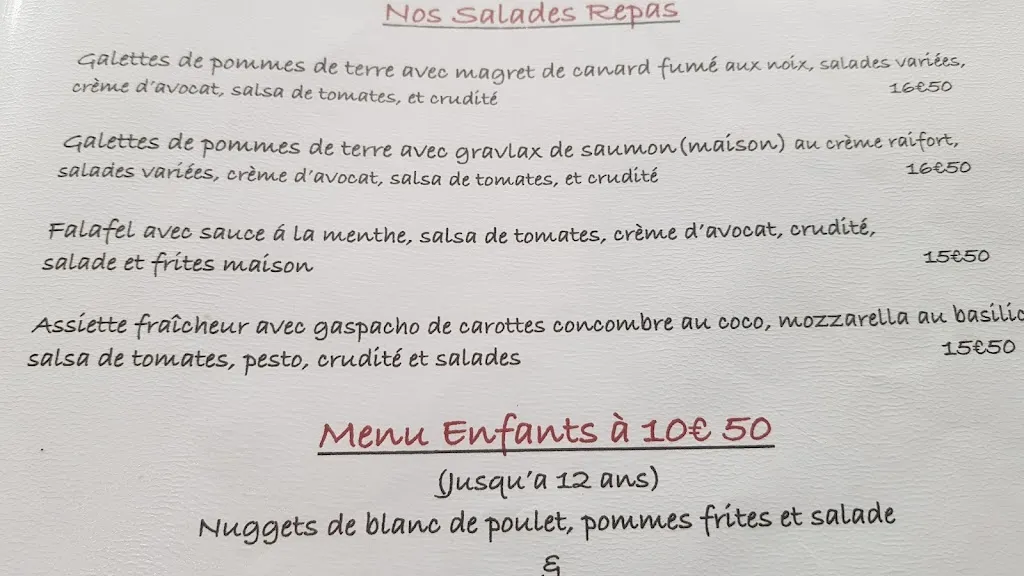 Nos Salades Repas
Galettes de pommes de terre avec magret de canard fumé aux noix, salades variées,
crème d'avocat, salsa de tomates, et crudité 16€50
Galettes de pommes de terre avec gravlax de saumon (maison) au crème raifort,
salades variées, crème d'avocat, salsa de tomates, et crudité 16€50
Falafel avec sauce á la menthe, salsa de tomates, crème d'avocat, crudité,
salade et frites maison 15€50
Assiette fraîcheur avec gaspacho de carottes concombre au coco, mozzarella au basilic
salsa de tomates, pesto, crudité et salades 15€50
Menu Enfants à 10€ 50
(Jusqu'a 12 ans)
Nuggets de blanc de poulet, pommes frites et salade
&